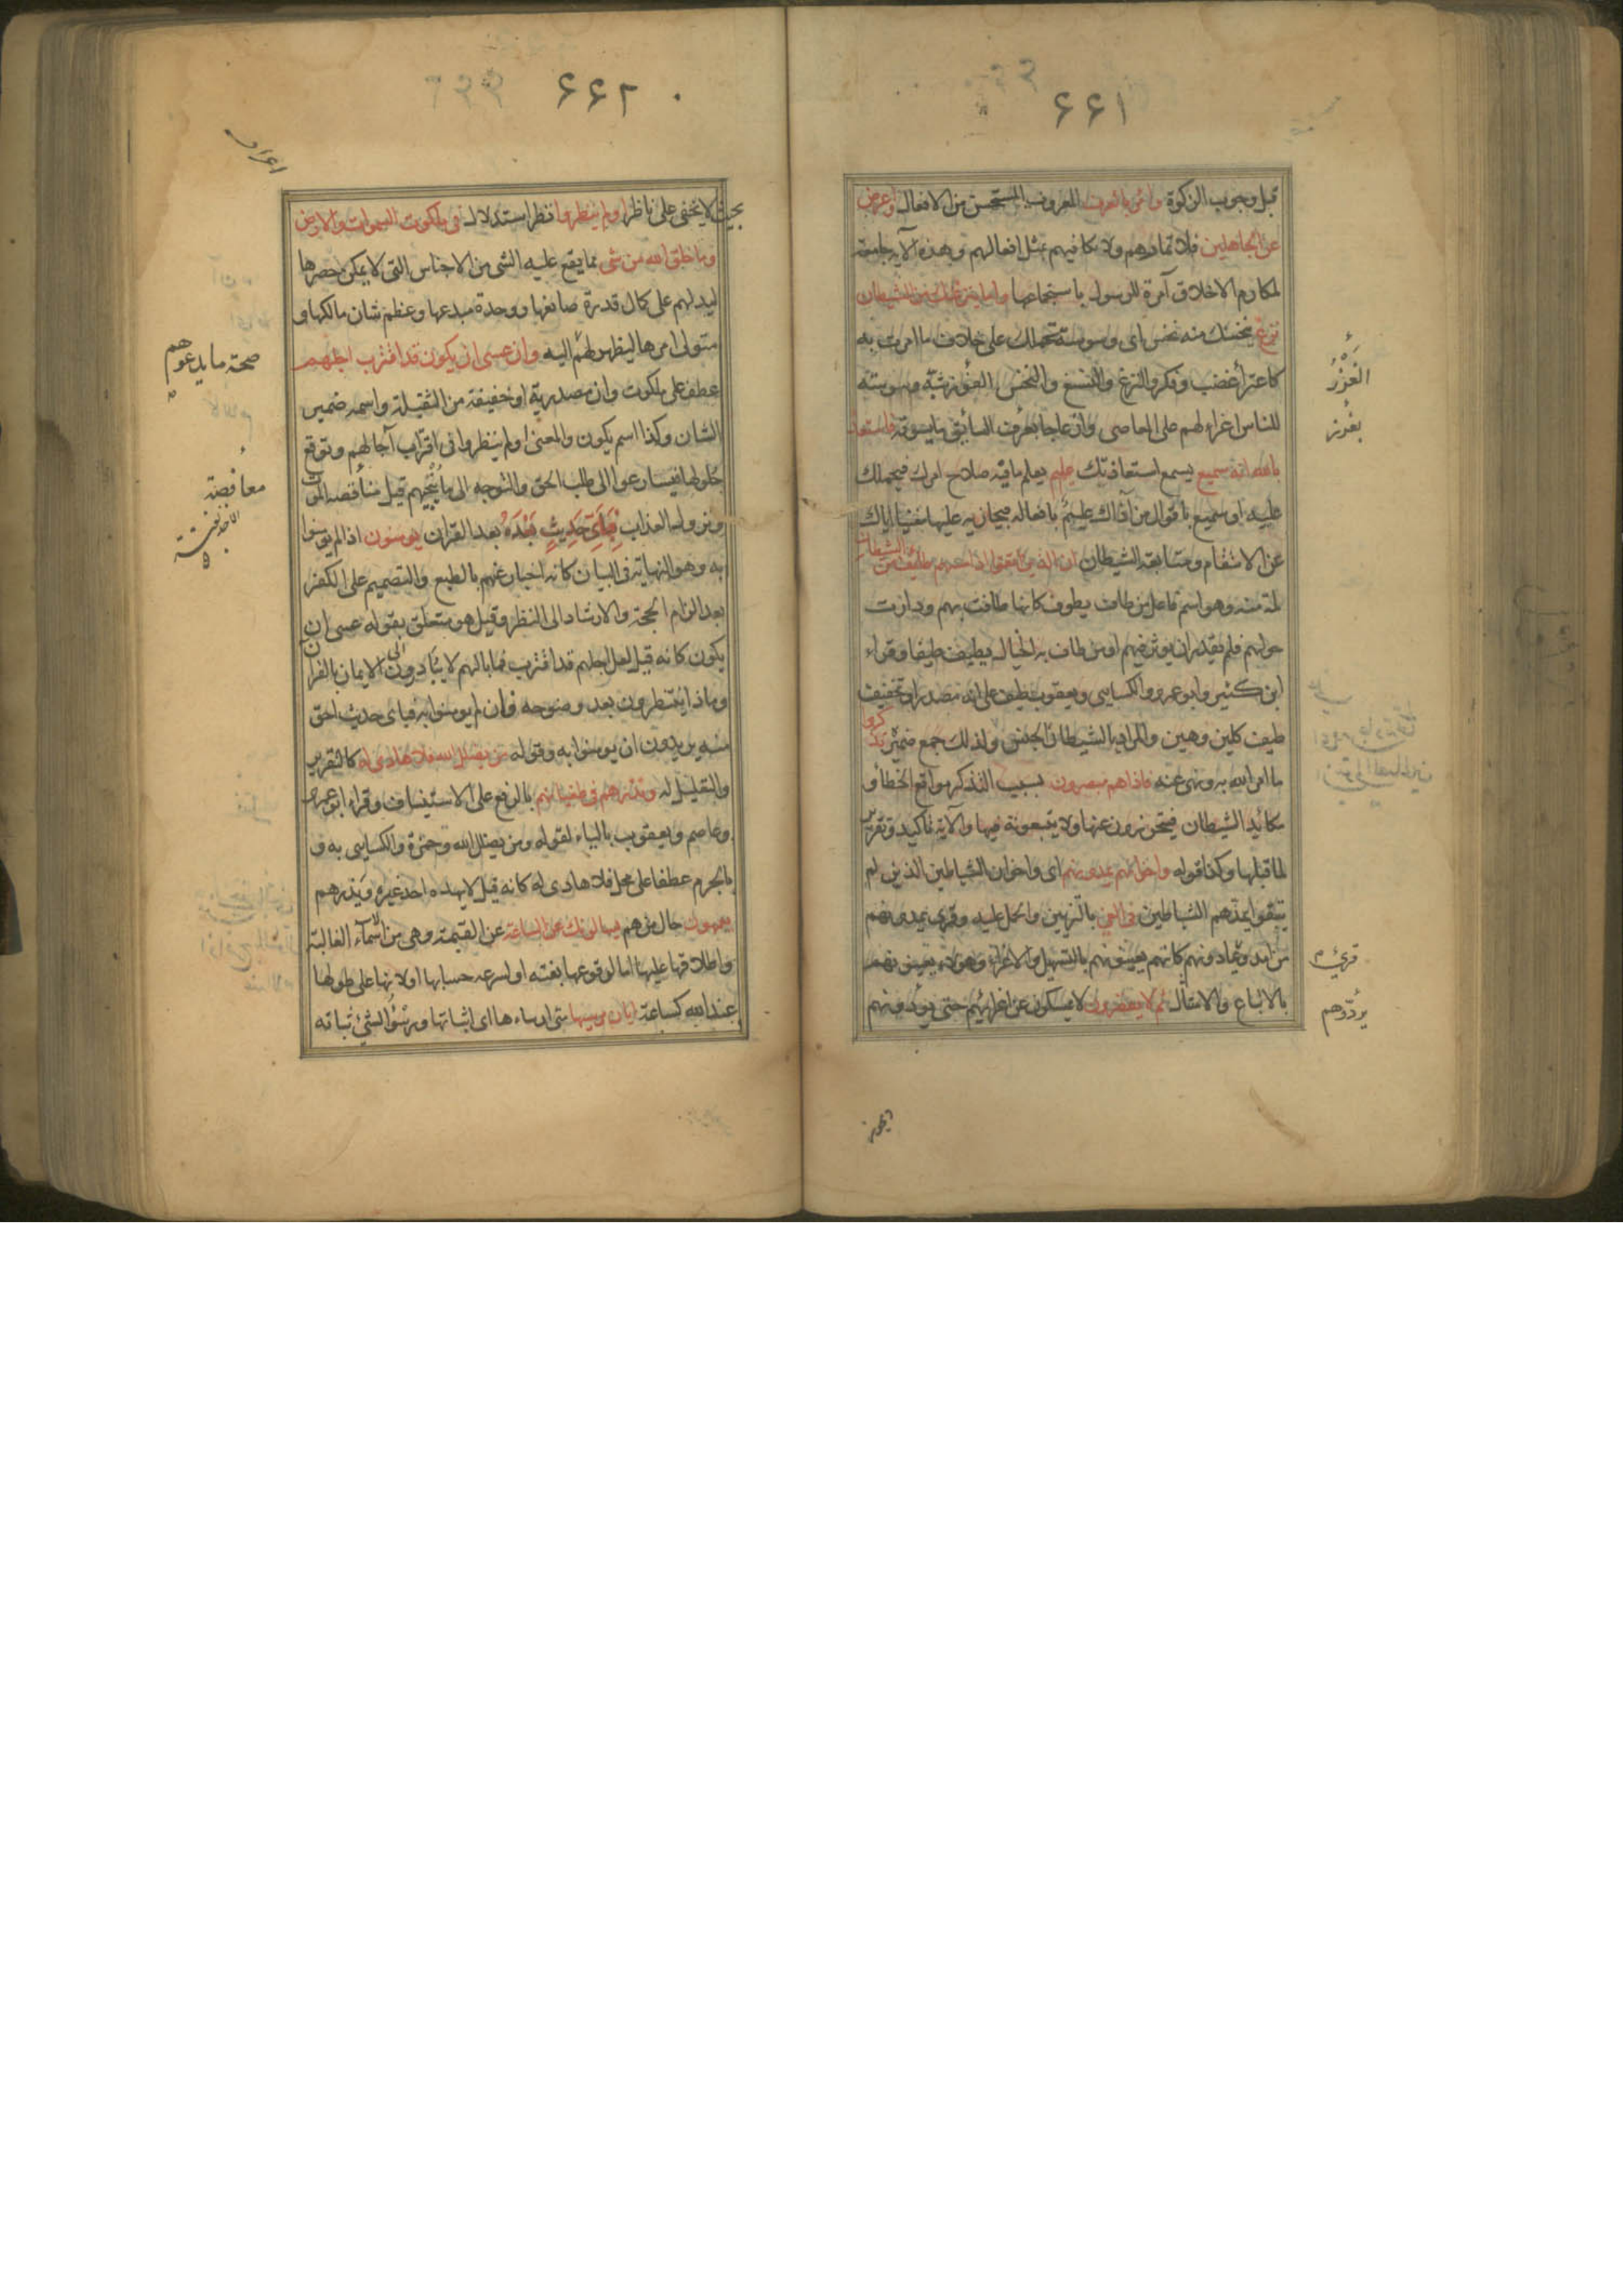 ۶۶۱
قبل وجوب الزكوة وأمر بالعرف المعروف المستحسن من الافعال واعرض
عن الجاهلين فلا تمارهم ولا تكافيهم بمثل افعالهم وهذه الآية جامعة
لمكارم الاخلاق آمرة للرسول باستجماعها واما ينزغنك من الشيطان
نزغ ينخسنك منه نخس اى وسوسة تحملك على خلاف ما امرت به
كاعتراء غضب وفكر والنزغ والنسغ والنخس الغرز شبّه وسوسته
للناس اغراء لهم على المعاصى وازعاجا بغرز السائق ما يسوقه فاستعذ
بالله انه سميع يسمع استعاذتك عليم يعلم ما فيه صلاح امرك فيحملك
عليه او سميع باقوال من آذاك عليم بافعاله مجازيه عليها مغنيا اياك
عن الانتقام ومتابعة الشيطان ان الذين اتقوا اذا مسهم طائف من الشيطان
لمة منه وهو اسم فاعل من طاف يطوف كانها طافت بهم ودارت
حولهم فلم يقدر ان يوثر فيهم او من طاف به الخيال يطيف طيفا وقراء
ابن كثير وابو عمرو والكسايى ويعقوب طيف على انه مصدر او تخفيف
طيف كلين وهين والمراد بالشيطان الجنس ولذلك جمع ضميره تذكروا
ما امر الله به ونهى عنه فاذاهم مبصرون بسبب التذكر مواقع الخطأ و
مكائد الشيطان فيتحرزون عنها ولا يتبعونه فيها والآية تاكيد وتقرير
لما قبلها وكذا قوله واخوانهم يمدونهم اى واخوان الشياطين الذين لم
يتقوا يمدهم الشياطين فى الغى بالتزيين والحمل عليه وقرى يمدونهم
من امد ويمادونهم كانهم يعينونهم بالتسهيل والاغراء وهولاء يعينونهم
بالاتباع والامتثال ثم لا يقصرون لا يمسكون عن اغوائهم حتى يردونهم
الغرز
بغرز
قرئ
يردّوهم
۶۶۲
اعراف
بحيث لا يخفى على ناظر اولم ينظروا نظر استدلال فى ملكوت السموات والارض
وما خلق الله من شى مما يقع عليه الشى من الاجناس التى لا يمكن حصرها
ليدلهم على كمال قدرة صانعها ووحدة مبدعها وعظم شان مالكها و
متولى امرها ليظهر لهم اليه وان عسى ان يكون قد اقترب اجلهم
عطف على ملكوت وان مصدرية او مخففة من الثقيلة واسمه ضمير
الشان وكذا اسم يكون والمعنى اولم ينظروا فى اقتراب آجالهم وتوقع
حلولها فيسارعوا الى طلب الحق والتوجه الى ما ينجيهم قبل مغافصة الموت
ونزول العذاب فباى حديث بعده بعد القرآن يومنون اذا لم يومنوا
به وهو النهاية فى البيان كانه اخبار عنهم بالطبع والتصميم على الكفر
بعد الزام الحجة والارشاد الى النظر وقيل هو متعلق بقوله عسى ان
يكون كانه قيل لعل اجلهم قد اقترب فما بالهم لا يبادرون الى الايمان بالقرآن
وماذا ينتظرون بعد وضوحه فان لم يومنوا به فباى حديث احق
منه يريدون ان يومنوا به وقوله من يضلل الله فلا هادى له كالتقرير
والتعليل له ونذرهم فى طغيانهم بالرفع على الاستيناف وقراء ابو عمرو
وعاصم ويعقوب بالياء لقوله ومن يضلل الله وحمزة والكسايى به و
بالجزم عطفا على محل فلا هادى له كانه قيل لا يهده احد غيره ويذرهم
يعمهون حال من هم يسالونك عن الساعة عن القيمة وهى من الاسماء الغالبة
واطلاقها عليها اما لوقوعها بغتة او لسرعة حسابها او لانها على طولها
عند الله كساعة ايان مرسيها متى ارساءها اى اثباتها ورسو الشئ ثباته
صحة ما يدعوهم
مغافصة